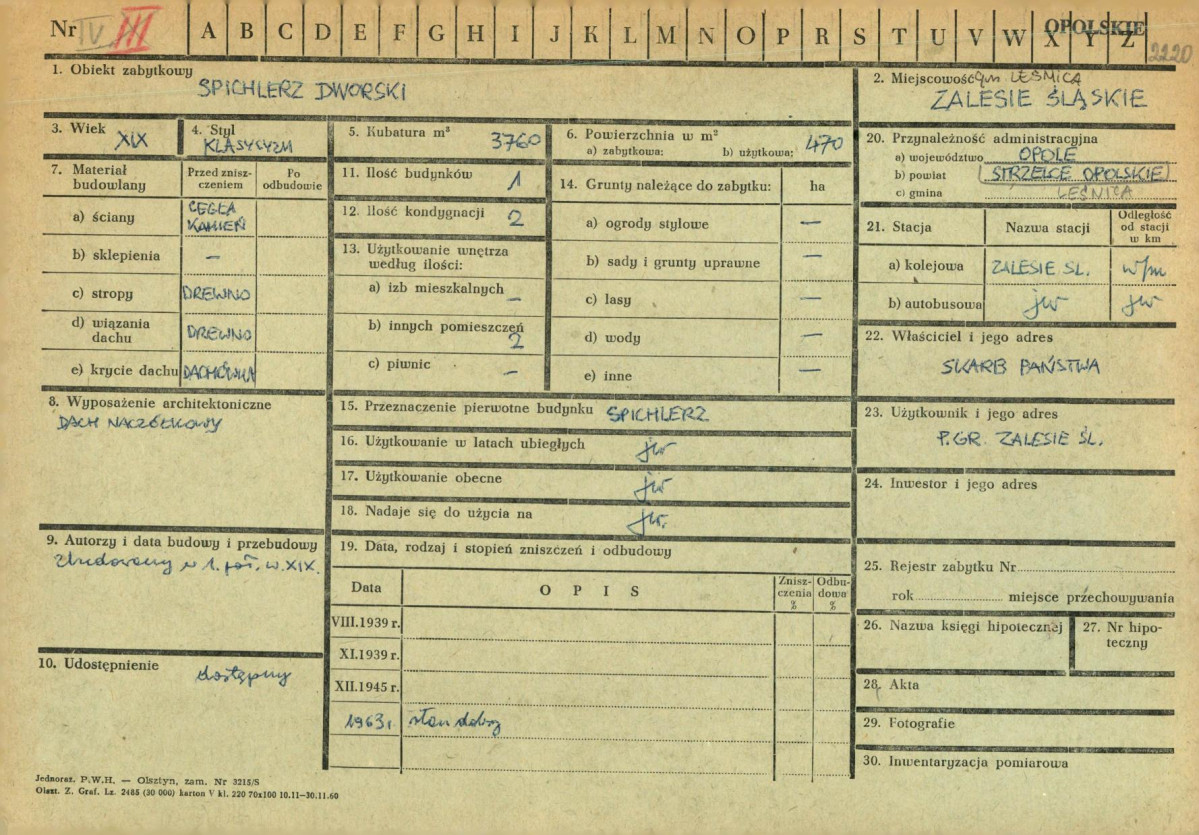 Nr IV III A B C D E F G H I J K L M N O P R S T U V W X Y Z OPOLSKIE 2220
1. Obiekt zabytkowy
SPICHLERZ DWORSKI
2. Miejscowość gm LEŚNICA
ZALESIE ŚLĄSKIE
3. Wiek
XIX
4. Styl
KLASYCYZM
5. Kubatura m³
3760
6. Powierzchnia w m²
a) zabytkowa: b) użytkowa: 470
7. Materiał budowlany
Przed zniszczeniem
Po odbudowie
a) ściany CEGŁA
KAMIEŃ
b) sklepienia —
c) stropy DREWNO
d) wiązania dachu DREWNO
e) krycie dachu DACHÓWKA
8. Wyposażenie architektoniczne
DACH NACZÓŁKOWY
9. Autorzy i data budowy i przebudowy
Zbudowany w 1. poł. w. XIX.
10. Udostępnienie
dostępny
11. Ilość budynków 1
12. Ilość kondygnacji 2
13. Użytkowanie wnętrza
według ilości:
a) izb mieszkalnych —
b) innych pomieszczeń
2
c) piwnic —
14. Grunty należące do zabytku: ha
a) ogrody stylowe —
b) sady i grunty uprawne —
c) lasy —
d) wody —
e) inne —
15. Przeznaczenie pierwotne budynku SPICHLERZ
16. Użytkowanie w latach ubiegłych jw
17. Użytkowanie obecne jw
18. Nadaje się do użycia na jw.
19. Data, rodzaj i stopień zniszczeń i odbudowy
Data OPIS Zniszczenia % Odbudowa %
VIII.1939 r.
XI.1939 r.
XII.1945 r.
1963 r. stan dobry
20. Przynależność administracyjna
a) województwo OPOLE
b) powiat STRZELCE OPOLSKIE
c) gmina LEŚNICA
21. Stacja Nazwa stacji Odległość od stacji w km
a) kolejowa ZALESIE ŚL. w/m
b) autobusowa jw jw
22. Właściciel i jego adres
SKARB PAŃSTWA
23. Użytkownik i jego adres
P.GR. ZALESIE ŚL.
24. Inwestor i jego adres
25. Rejestr zabytku Nr
rok miejsce przechowywania
26. Nazwa księgi hipotecznej
27. Nr hipoteczny
28. Akta
29. Fotografie
30. Inwentaryzacja pomiarowa
Jednoraz. P.W.H. — Olsztyn, zam. Nr 3215/S
Olszt. Z. Graf. Lz. 2485 (30 000) karton V kl. 220 70x100 10.11—30.11.60